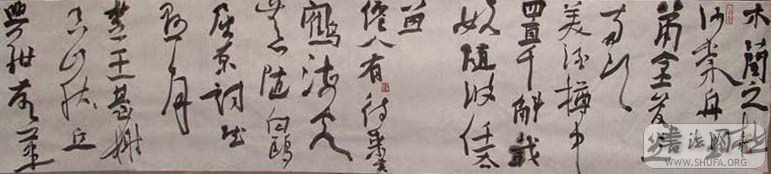 木蘭之枻
沙棠舟
簫金管坐
兩頭
美酒樽中
置千斛載
妓隨波任去
留
僊人有待乘黃
鶴海客
無心隨白鷗
屈平詞賦
懸日月
楚王臺榭
空山丘
興酣落筆
WWW.SHUFA.ORG